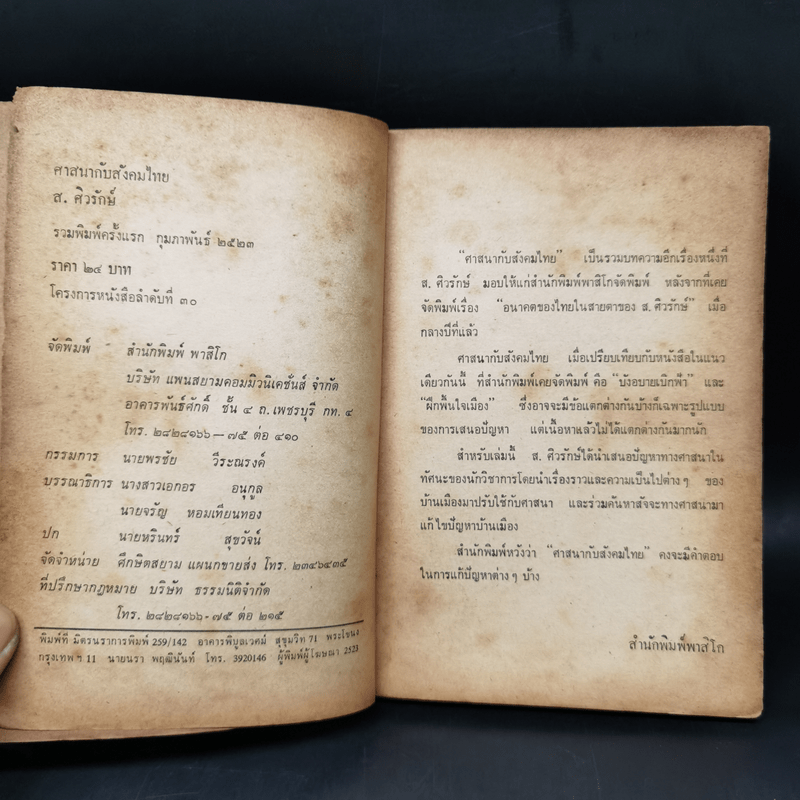 ศาสนากับสังคมไทย
ส. ศิวรักษ์
รวมพิมพ์ครั้งแรก กุมภาพันธ์ ๒๕๒๓
ราคา ๒๔ บาท
โครงการหนังสือลำดับที่ ๓๐
จัดพิมพ์ สำนักพิมพ์ พาสิโก
บริษัท แพนสยามคอมมิวนิเคชั่นส์ จำกัด
อาคารพันธ์ศักดิ์ ชั้น ๔ ถ.เพชรบุรี กท. ๔
โทร. ๒๘๒๘๑๖๖—๗๕ ต่อ ๔๑๐
กรรมการ นายพรชัย วีระณรงค์
บรรณาธิการ นางสาวเอกอร อนุกูล
นายจรัญ หอมเทียนทอง
ปก นายหรินทร์ สุขวัจน์
จัดจำหน่าย ศึกษิตสยาม แผนกขายส่ง โทร. ๒๓๔๖๔๓๕
ที่ปรึกษากฎหมาย บริษัท ธรรมนิติจำกัด
โทร. ๒๘๒๘๑๖๖-๗๕ ต่อ ๒๑๕
พิมพ์ที่ มิตรนราการพิมพ์ 259/142 อาคารพิบูลเวศม์ สุขุมวิท 71 พระโขนง
กรุงเทพฯ 11 นายนรา พฤฒินันท์ โทร. 3920146 ผู้พิมพ์ผู้โฆษณา 2523
“ศาสนากับสังคมไทย” เป็นรวมบทความอีกเรื่องหนึ่งที่
ส. ศิวรักษ์ มอบให้แก่สำนักพิมพ์พาสิโกจัดพิมพ์ หลังจากที่เคย
จัดพิมพ์เรื่อง “อนาคตของไทยในสายตาของ ส. ศิวรักษ์” เมื่อ
กลางปีที่แล้ว
ศาสนากับสังคมไทย เมื่อเปรียบเทียบกับหนังสือในแนว
เดียวกันนี้ ที่สำนักพิมพ์เคยจัดพิมพ์ คือ “บังอบายเบิกฟ้า” และ
“ฝึกพื้นใจเมือง” ซึ่งอาจจะมีข้อแตกต่างกันบ้างก็เฉพาะรูปแบบ
ของการเสนอปัญหา แต่เนื้อหาแล้วไม่ได้แตกต่างกันมากนัก
สำหรับเล่มนี้ ส. ศิวรักษ์ได้นำเสนอปัญหาทางศาสนาใน
ทัศนะของนักวิชาการโดยนำเรื่องราวและความเป็นไปต่างๆ ของ
บ้านเมืองมาปรับใช้กับศาสนา และร่วมค้นหาสัจจะทางศาสนามา
แก้ไขปัญหาบ้านเมือง
สำนักพิมพ์หวังว่า “ศาสนากับสังคมไทย” คงจะมีคำตอบ
ในการแก้ปัญหาต่างๆ บ้าง
สำนักพิมพ์พาสิโก